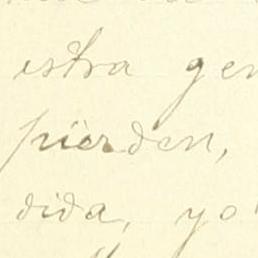 istra gen
pierden,
dida, yo